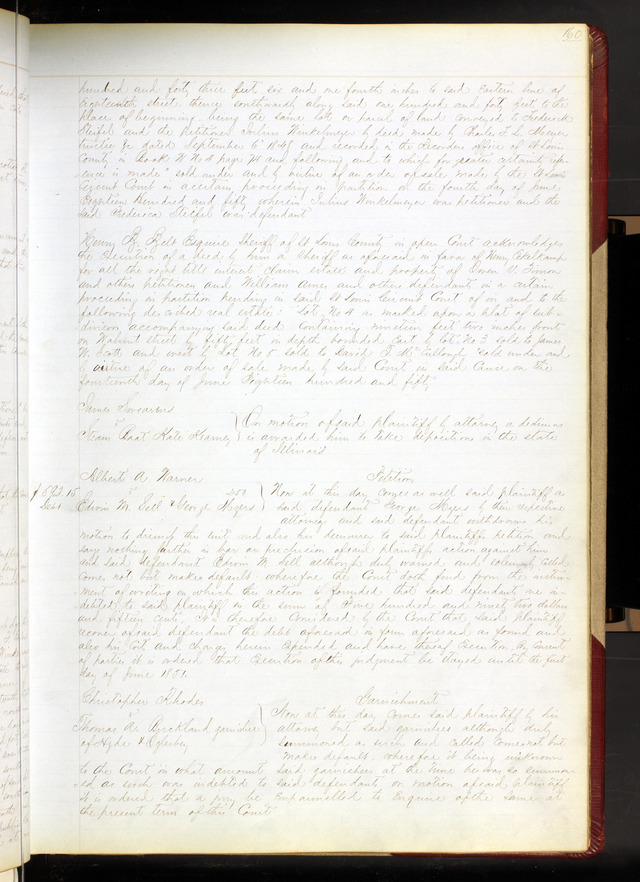 160
hundred and forty three feet six and one fourth inches to said Eastern line of
Eighteenth street thence southwardly along said one hundred and forty feet to the
place of beginning being the same lot or parcel of land conveyed to Frederick
Steifel and the petitioner Julius Winkelmeyer by deed made by Charles F. L. Meier
trustee &c dated September 6th 1848 and recorded in the Recorders office of St Louis
County in Book W No 4 page 74 and following and to which for greater certainty refe-
rence is made" sold under and by virtue of an order of sale made by the St Louis
Circuit Court in a certain proceeding in partition on the fourth day of June
Eighteen Hundred and fifty wherein Julius Winkelmeyer was petitioner and the
said Frederica Steifel was defendant
Henry B. Belt Esquire Sheriff of St Louis County in open Court acknowledges
the Execution of a deed by him as Sheriff as aforesaid in favor of Henry Eckelkamp
for all the right title interest claim estate and property of Owen V. Timon
and others petitioners and William Ames and others defendants in a certain
proceeding in partition pending in said St Louis Circuit Court of in and to the
following described real estate "Lot No 4 as marked upon a plat of sub-
division accompanying said deed containing nineteen feet two inches front
on Walnut street by fifty feet in depth bounded East by lot No 3 sold to James
W. Scott and west by Lot No 5 sold to David T. McCullough" sold under and
by virtue of an order of sale made by said Court in said Cause on the
fourteenth day of June Eighteen hundred and fifty
James Swearins
vs
Steam Boat Kate Kearney
On motion of said plaintiff by attorney a dedimus
is awarded him to take depositions in the state
of Illinois
Albert A. Warner
vs
Edwin M. Sell & George Myers
Petition
Now at this day comes as well said plaintiff as
said defendant George Myers by their respective
attorneys and said defendant withdraws his
motion to dismiss this suit and also his demurrer to said plaintiffs petition and
says nothing further in bar or preclusion of said plaintiffs action against him
and said defendant Edwin M. Sell although duly warned and solemnly called
comes not but makes default wherefore the Court doth find from the instru-
ment of writing on which this action is founded that said defendants are in-
debted to said plaintiff in the sum of Five hundred and ninety two dollars
and fifteen cents. It is therefore Considered by the Court that said plaintiff
recover of said defendant the debt aforesaid in form aforesaid as found and
also his cost and charges herein expended and have thereof Execution. By Consent
of parties it is ordered that Execution of this judgment be stayed until the first
day of June 1851.
$592.15
Debt
Christopher Rhodes
vs
Thomas A. Buckland garnishee
of Hyde &
Garnishment
Now at this day comes said plaintiff by his
attorney but said garnishee although duly
summoned as such and called comes not but
makes default. wherefore it being unknown
to the Court in what amount said garnishee at the time he was so summon-
ed as such was indebted to said defendants on motion of said plaintiff
it is ordered that a jury be Empannelled to Enquire of the same at
the present term of this Court